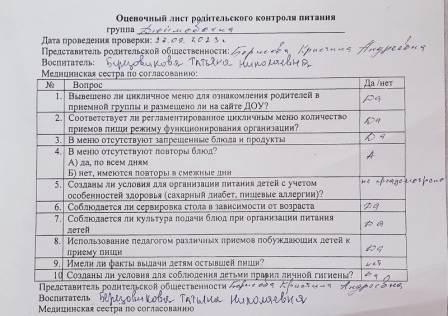 Оценочный лист родительского контроля питания
группа Дюймовочка
Дата проведения проверки: 22.09.2023г.
Представитель родительской общественности: Борисова Кристина Андреевна
Воспитатель: Березовикова Татьяна Николаевна
Медицинская сестра по согласованию:
№ Вопрос Да /нет
1. Вывешено ли цикличное меню для ознакомления родителей в приемной группы и размещено ли на сайте ДОУ? Да
2. Соответствует ли регламентированное цикличным меню количество приемов пищи режиму функционирования организации? Да
3. В меню отсутствуют запрещенные блюда и продукты Да
4. В меню отсутствуют повторы блюд? А
А) да, по всем дням
Б) нет, имеются повторы в смежные дни
5. Созданы ли условия для организации питания детей с учетом не предусмотрено
особенностей здоровья (сахарный диабет, пищевые аллергии)?
6. Соблюдается ли сервировка стола в зависимости от возраста Да
7. Соблюдается ли культура подачи блюд при организации питания детей Да
8. Использование педагогом различных приемов побуждающих детей к приему пищи Да
9. Имели ли факты выдачи детям остывшей пищи? нет
10 Созданы ли условия для соблюдения детьми правил личной гигиены? Да
Представитель родительской общественности Борисова Кристина Андреевна
Воспитатель Березовикова Татьяна Николаевна
Медицинская сестра по согласованию